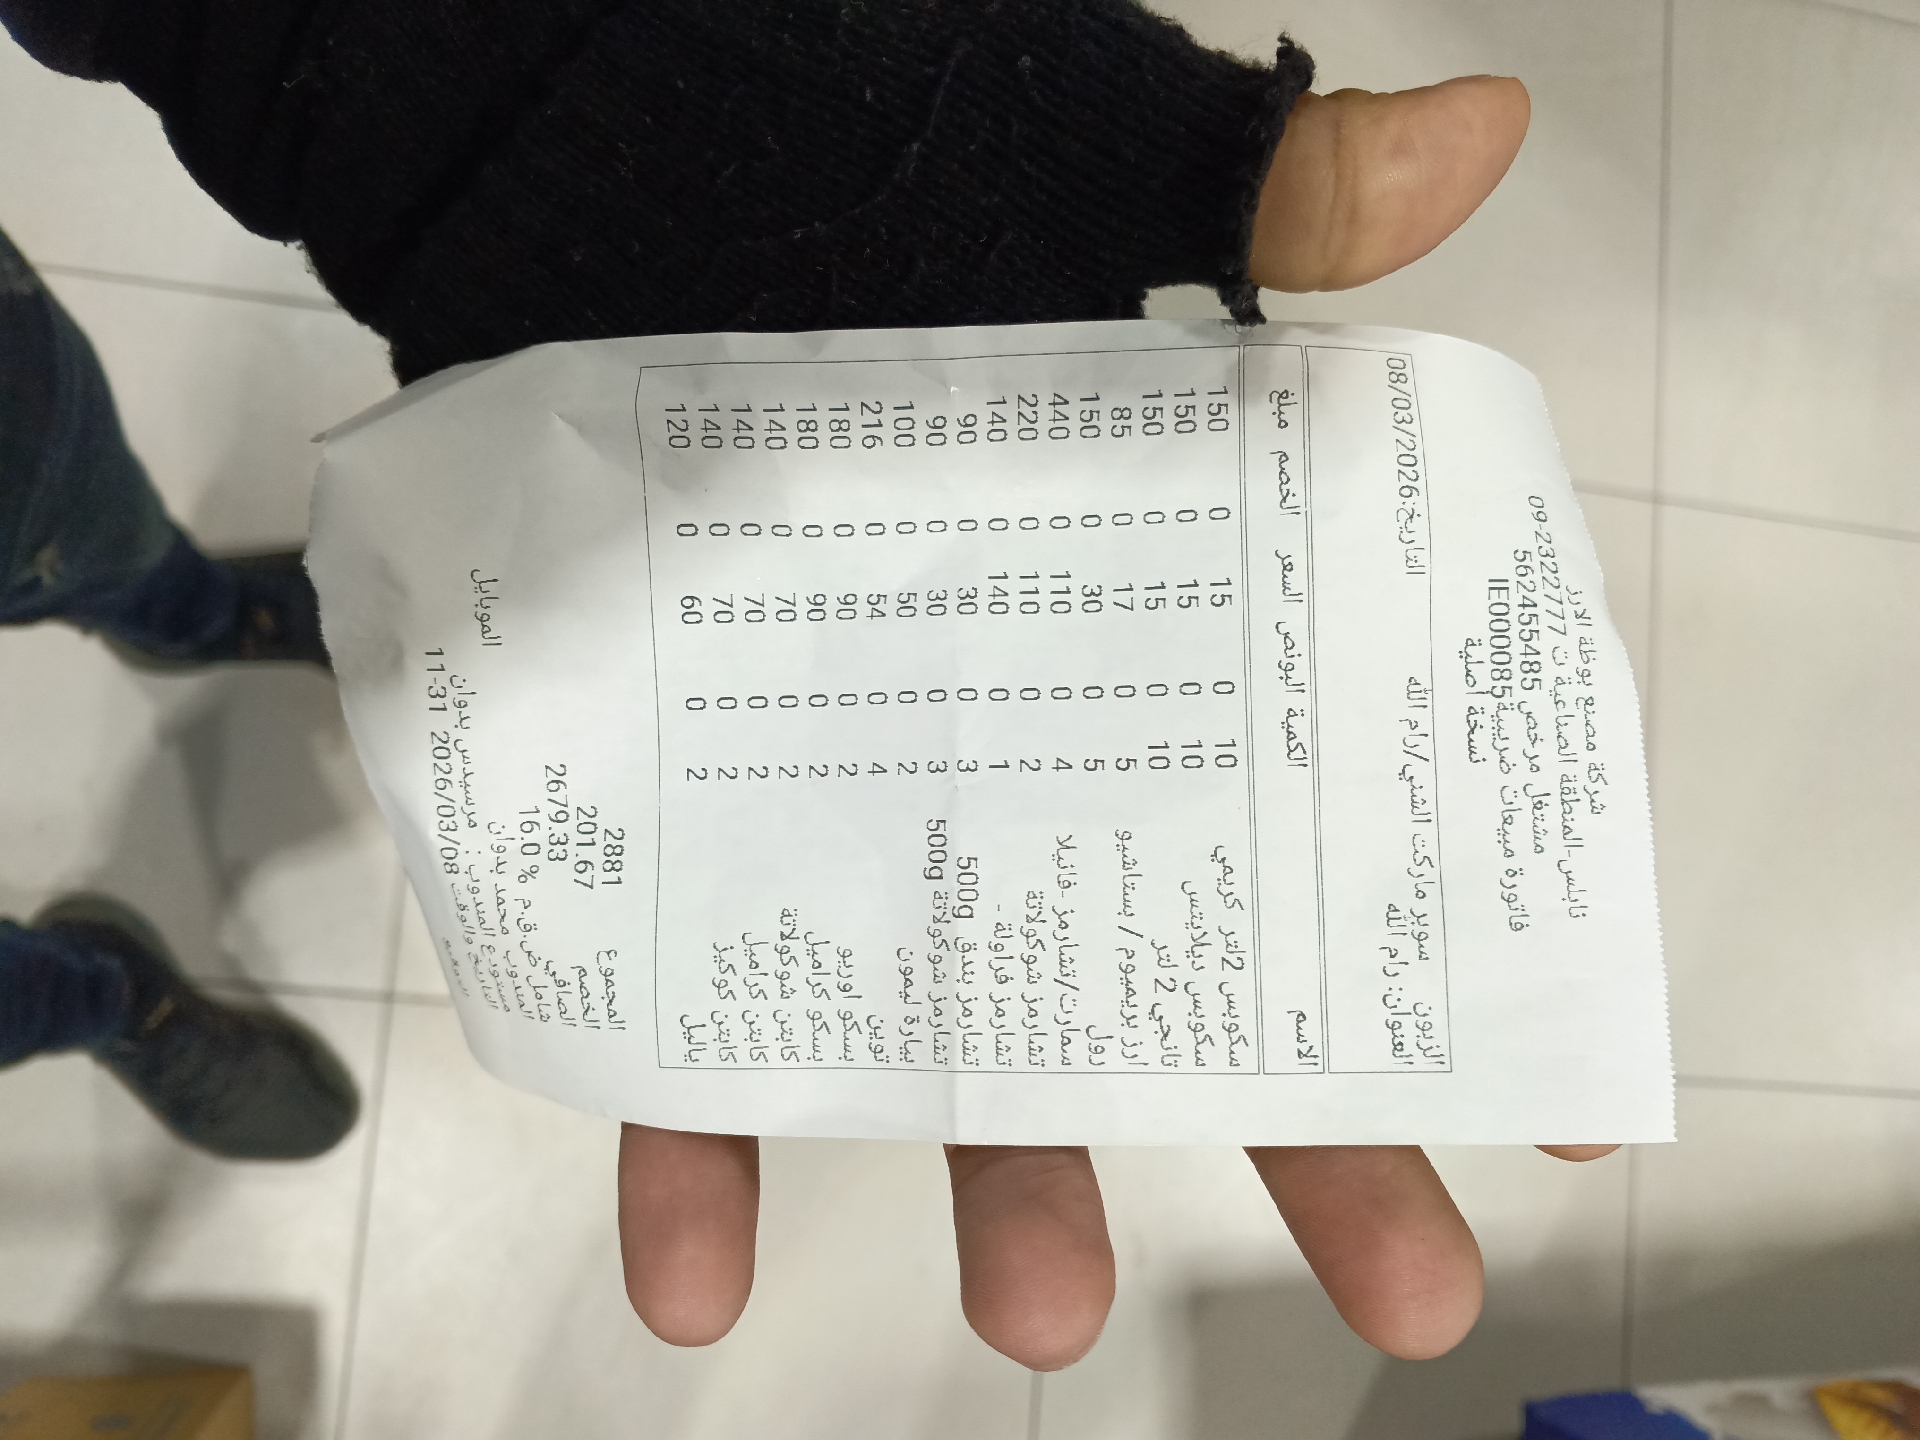 شركة مصنع بوظة الارز
نابلس-المنطقة الصناعية ت 09-2322777
مشتغل مرخص 562455485
فاتورة مبيعات ضريبية IE0000085
نسخة أصلية
الزبون سوبر ماركت الشني/رام الله التاريخ:08/03/2026
العنوان: رام الله
الاسم الكمية البونص السعر الخصم مبلغ
سكوبس 2لتر كريمي 10 0 15 0 150
سكوبس ديلايتس 10 0 15 0 150
تانجي 2 لتر 10 0 15 0 150
ارز بريميوم / بستاشيو 5 0 17 0 85
رول 5 0 30 0 150
سمارت/تشارمز -فانيلا 4 0 110 0 440
تشارمز شوكولاتة 2 0 110 0 220
تشارمز فراولة - 1 0 140 0 140
تشارمز بندق 500g 3 0 30 0 90
تشارمز شوكولاتة 500g 3 0 30 0 90
بيارة ليمون 2 0 50 0 100
توين 4 0 54 0 216
بسكو اوريو 2 0 90 0 180
بسكو كراميل 2 0 90 0 180
كابتن شوكولاتة 2 0 70 0 140
كابتن كراميل 2 0 70 0 140
كابتن كوكيز 2 0 70 0 140
ياليل 2 0 60 0 120
المجموع 2881
الخصم 201.67
الصافي 2679.33
شامل ض.ق.م % 16.0
المندوب محمد بدوان
مستودع المندوب : مرسيدس بدوان الموبايل
التاريخ والوقت 2026/03/08 11-31